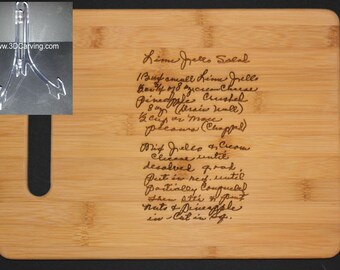 www.3DCarving.com
Lime Jello Salad
1 Box small Lime Jello
Box of 8 oz cream Cheese
Pineapple Crushed
8 oz (Drain Well)
½ cup or more
pecans (Chopped)
Mix Jello & Cream
Cheese until
dissolved & good,
Put in ref. until
Partially Congealed
then stir & put
Nuts & Pineapple
in - Cut in Sq.